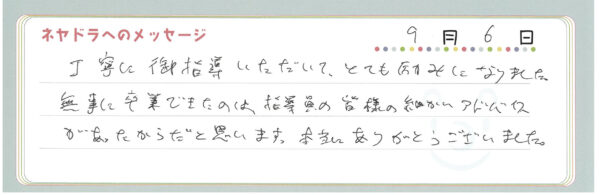 ネヤドラへのメッセージ
9月6日
丁寧に御指導いただいて、とても励みになりました。
無事に卒業できたのは、指導員の皆様の細かいアドバイス
があったからだと思います。本当にありがとうございました。